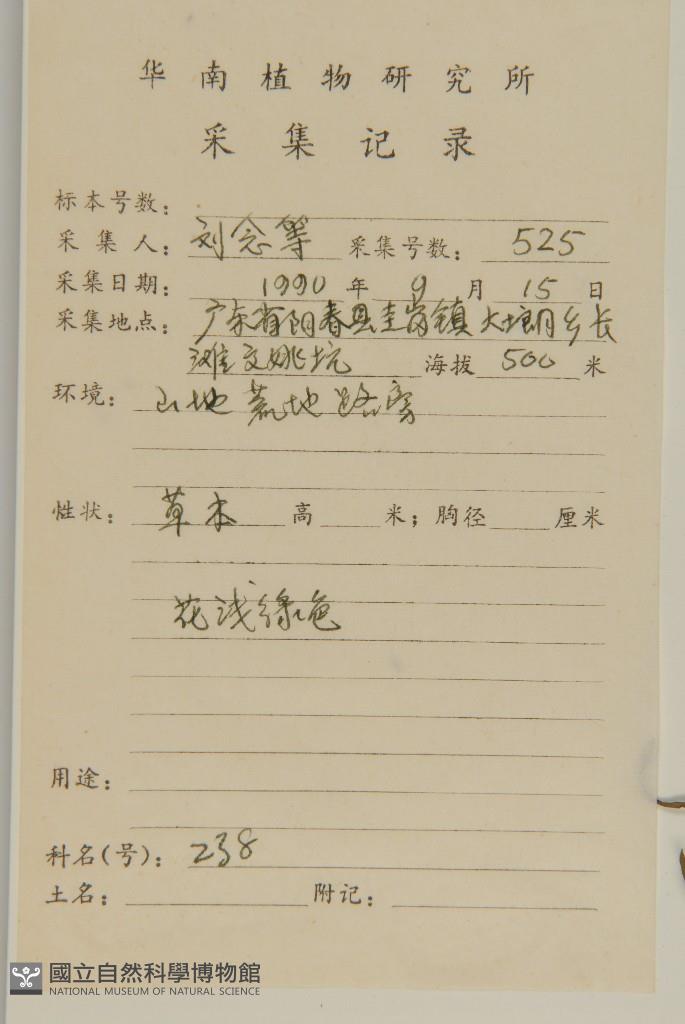 华南植物研究所
采集记录
标本号数：
采集人：刘念等 采集号数：525
采集日期：1990年9月15日
采集地点：广东省阳春县圭岗镇大垌乡长
滩文姚坑 海拔500米
环境：山地荒地路旁
性状：草本 高 米；胸径 厘米
花浅绿色
用途：
科名(号)：238
土名： 附记：
國立自然科學博物館
NATIONAL MUSEUM OF NATURAL SCIENCE